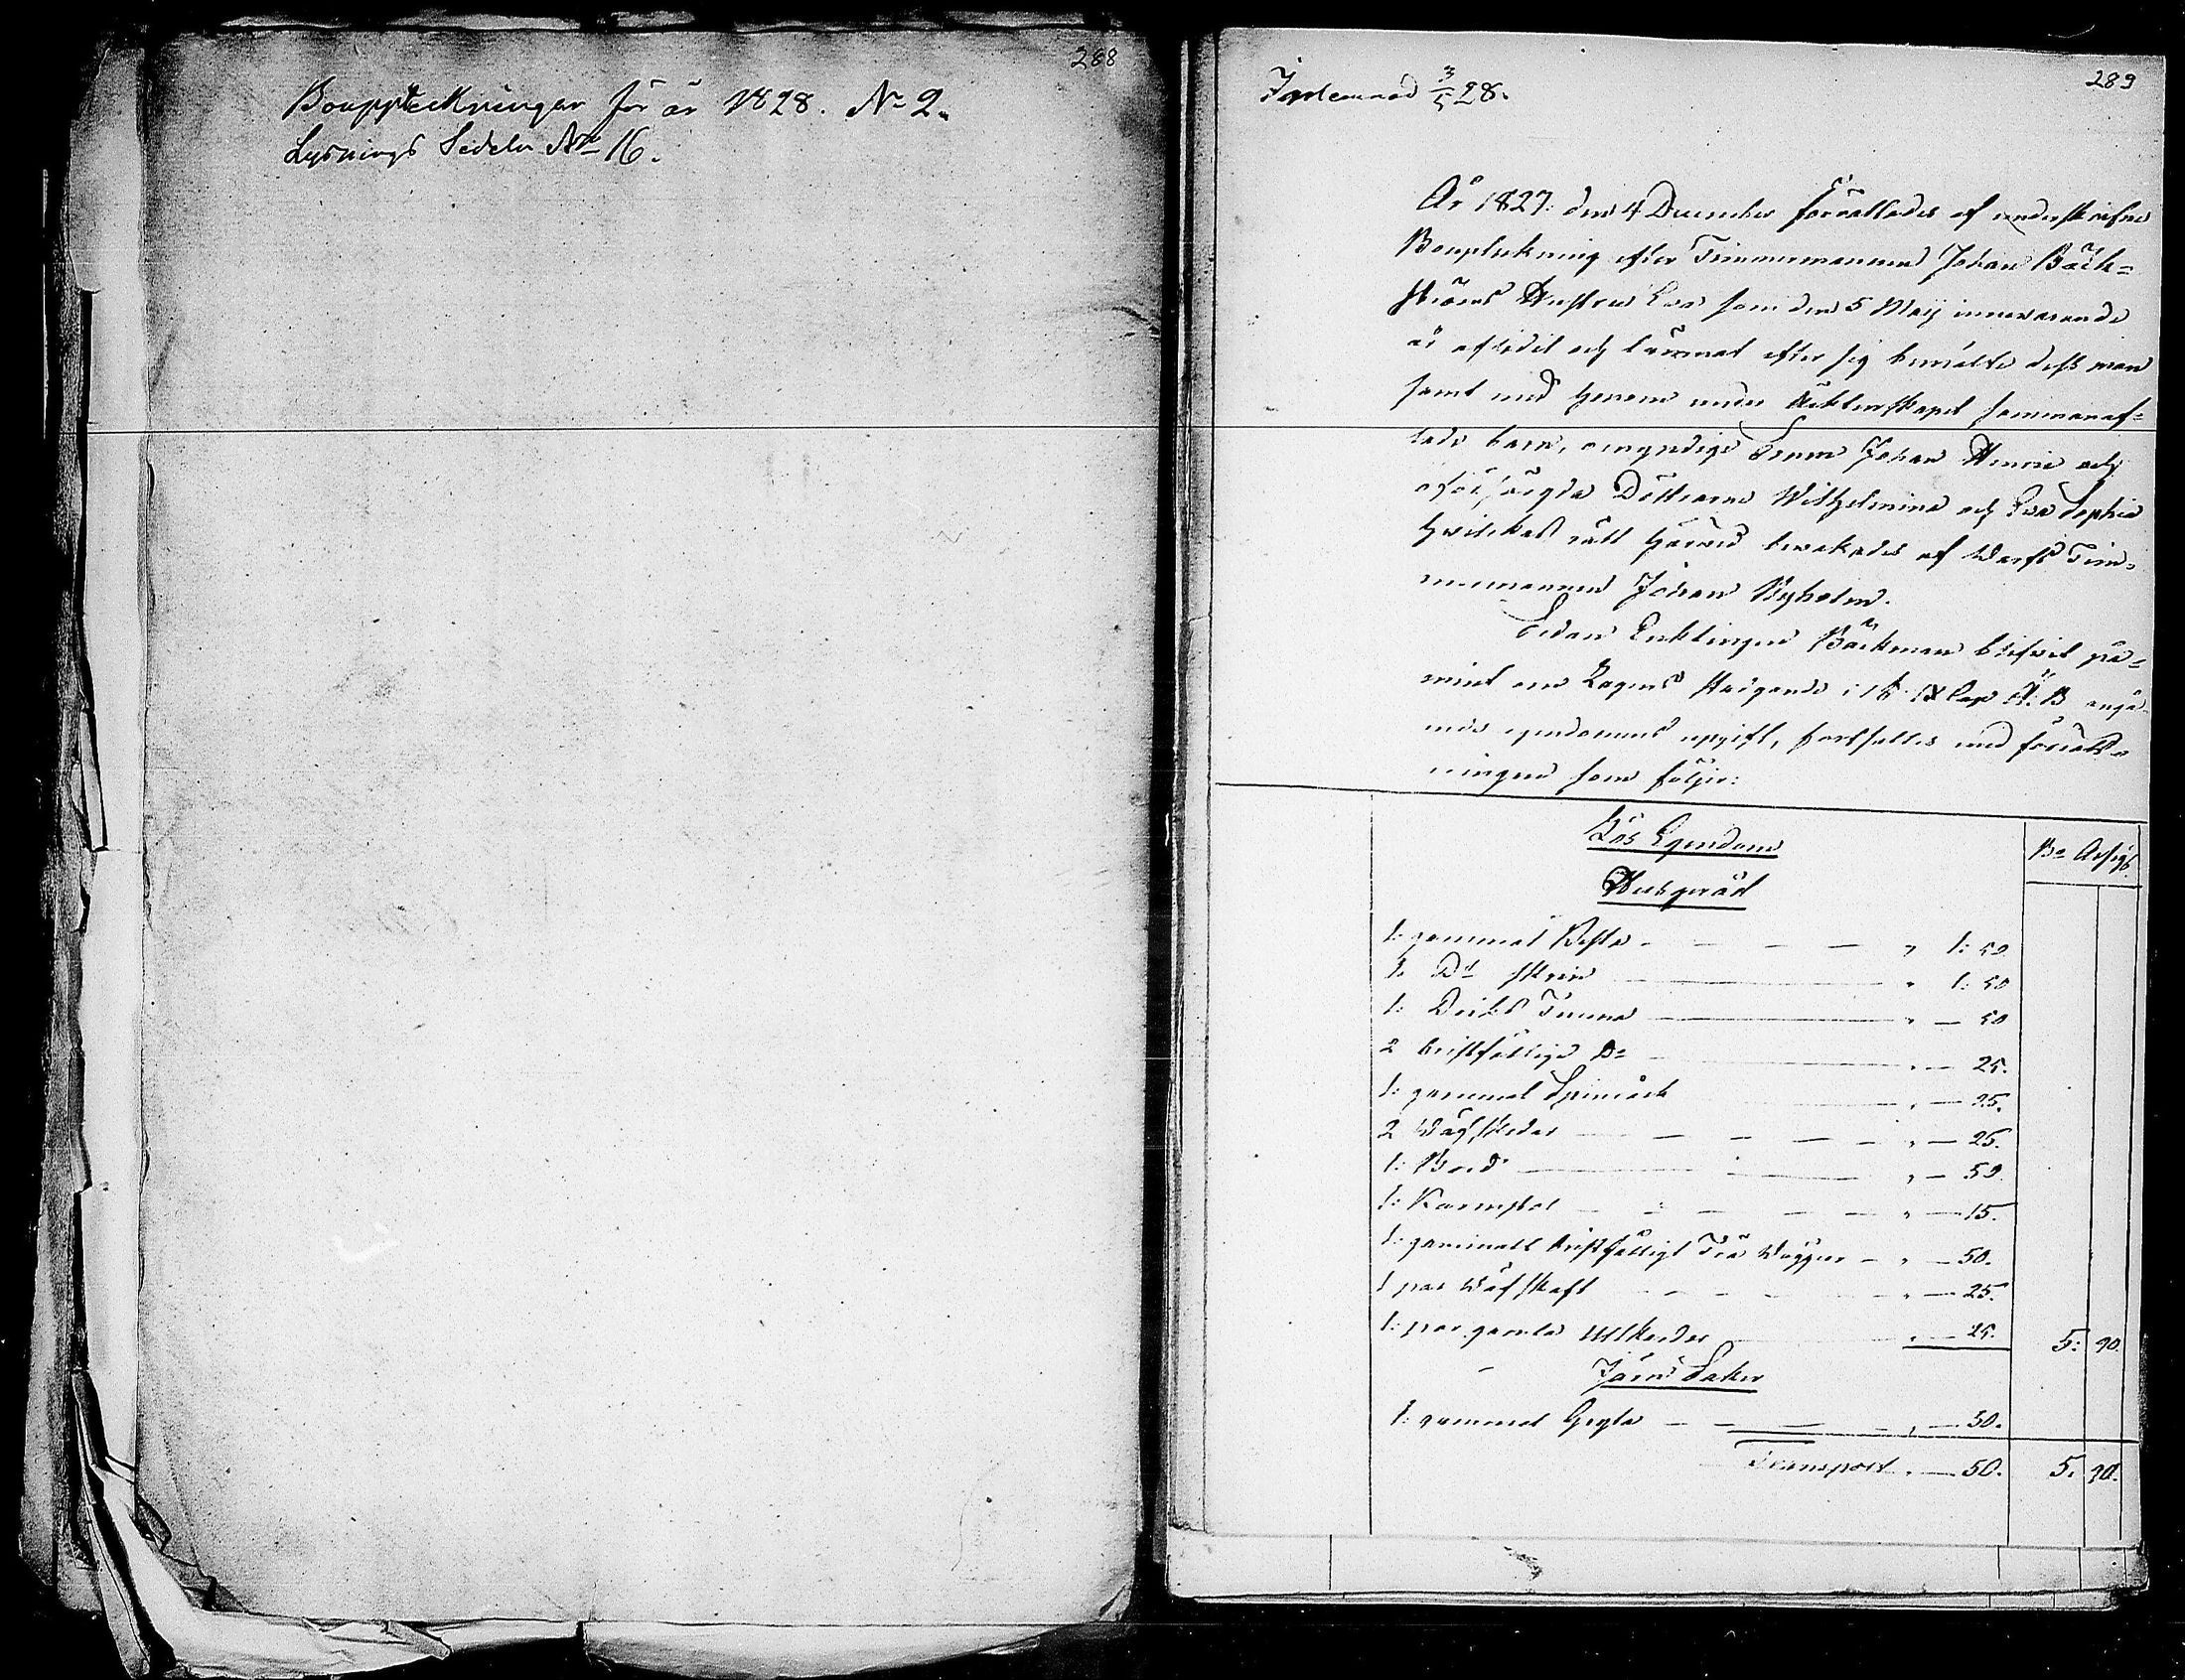 288
Bouppteckningar för år 1828. No 2.
Lysnings Sedeln No 16.
289
Inlemnad 3/5 28.
År 1827: den 4 December förrättades af undeskrefne
Bouptekning efter Timmermannen Johan Bäck=
ströms Hustru Eva som den 5 Maij innevarande
år aflidit och lämnat efter sig bemälte dess man
samt med honom under Äktenskapet sammanaf=
lade barn, omyndige Sonen Johan Henric och
oförsörgda Döttrarne Wilhelmina och Eva Sophia
hvilkas rätt härvid bevakades af Warfs Tim=
mermannen Johan Nyholm.
Sedan Enklingen Bäckman blifvit på=
mint om Lagens stadgande i Cap Ä: B angå=
ende egendomens upgift, fortsattes med förrätt=
ningen som följer:
Lös Egendom
Bco Assigs.
Husgeråd
1: gammal Kista — — — — " 1: 50
1. Do skrin " 1: 50
1: Dricks Tunna " — 50
2 bristfällige Do " — 25.
1: gammal Spinråck " — 25.
2 Wäfskedar — — — — " — 25.
1: Bord " — 50.
1: Karmstol — — — — " — 15.
1: gammalt bristfälligt Trä — " — 50.
1 par Wäfskaft " — 25.
1: par gamla Ullkardor " — 25. 5: 90.
Järn Saker
1: gammal Gryta — — — " — 50.
Transport " — 50. 5. 90.